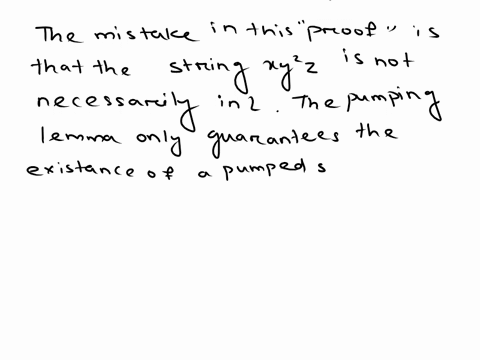 The mistake in this "proof" is
that the string xy²z is not
necessarily in 2. The pumping
lemma only guarantees the
existance of a pumped s